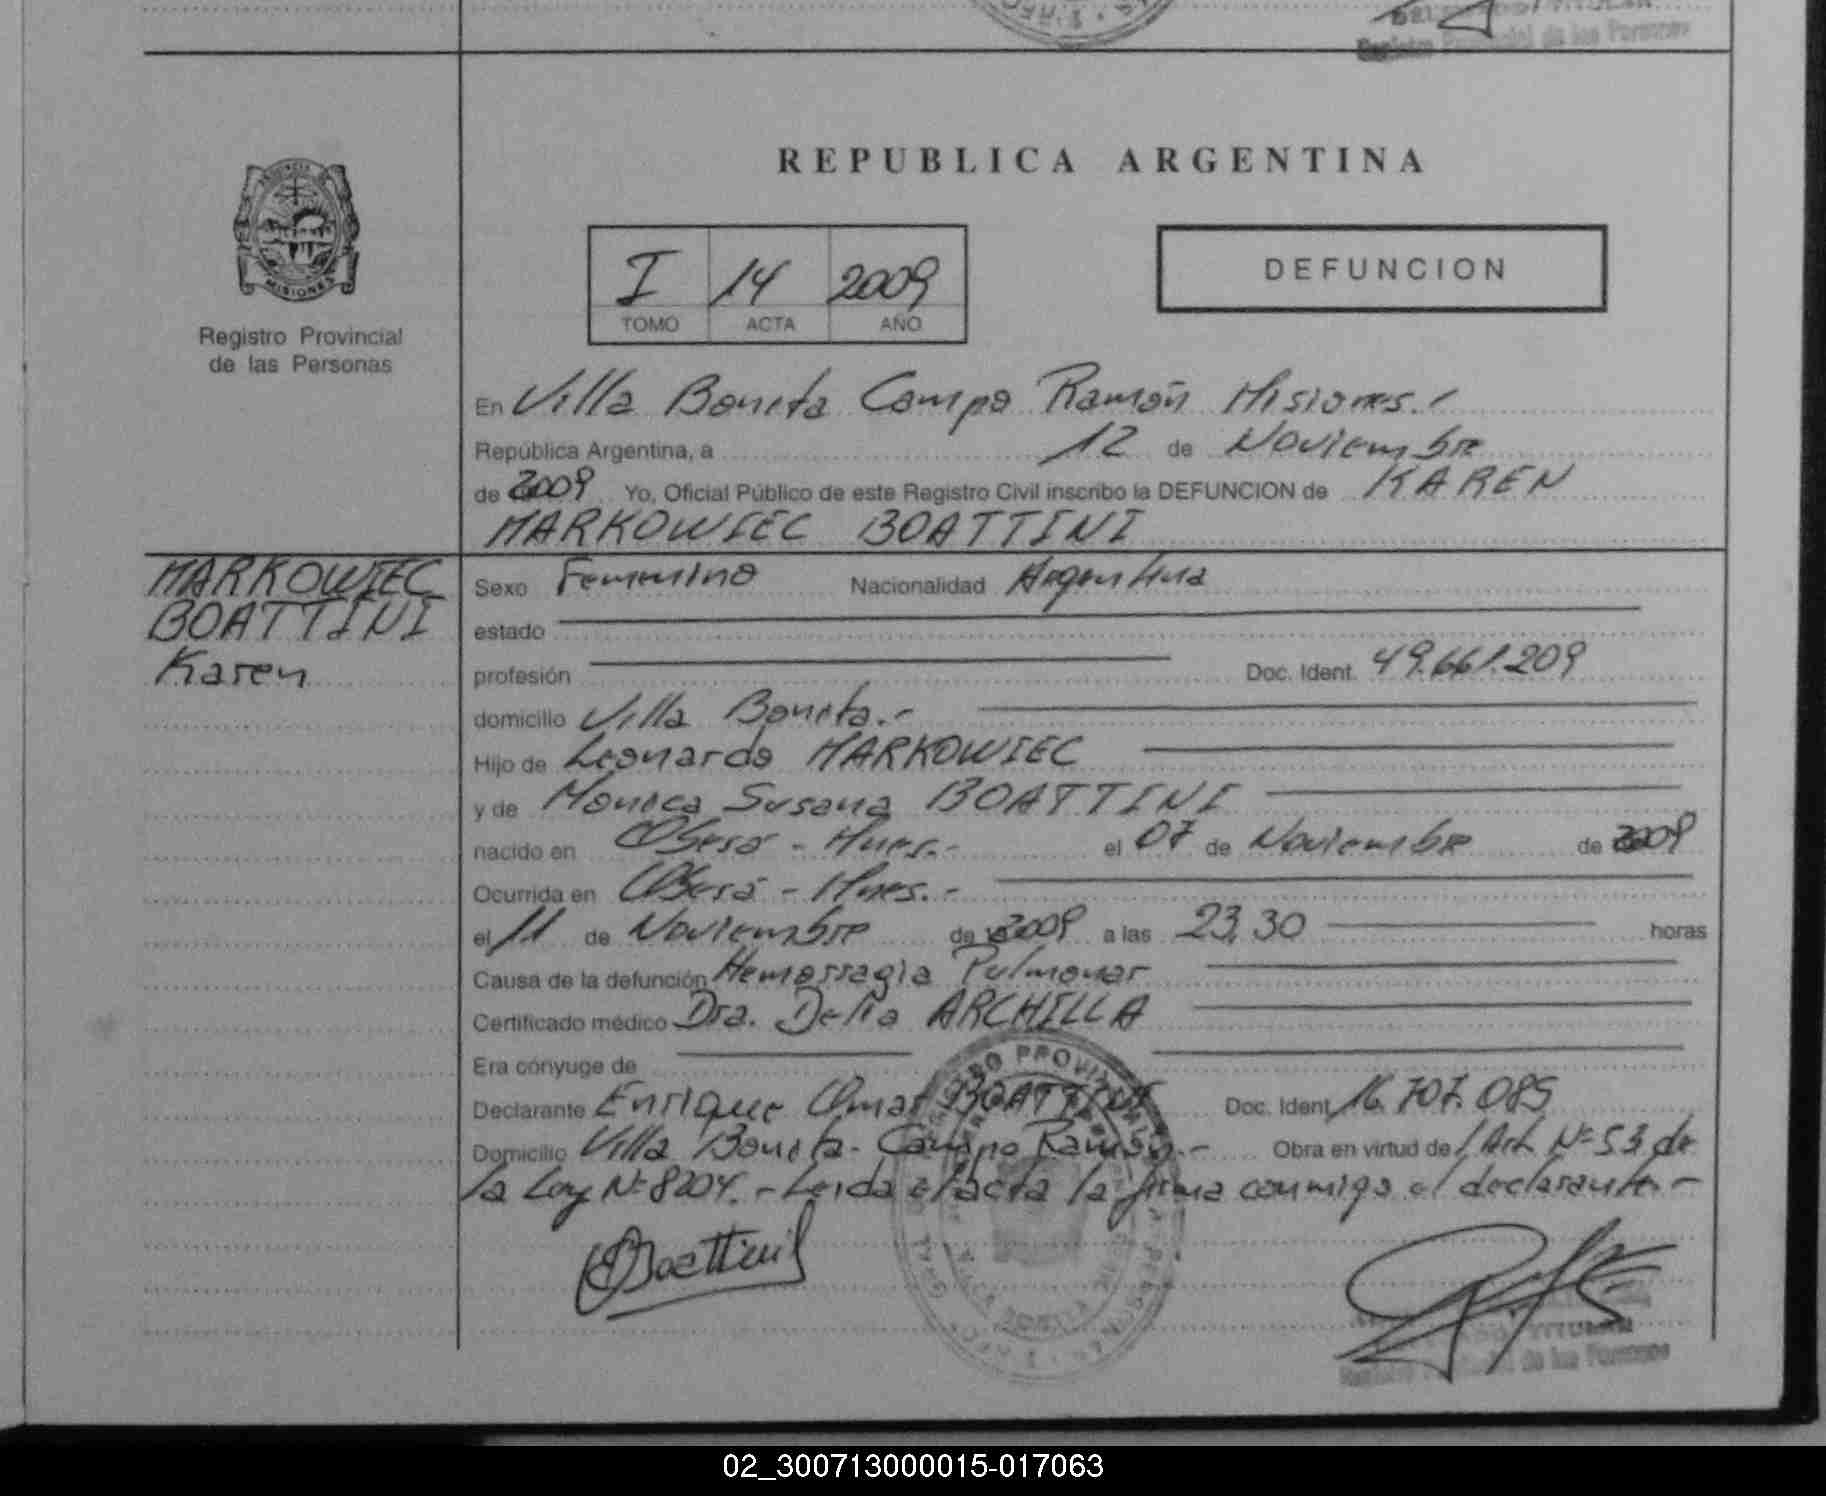 Registro Provincial de las Personas
REPUBLICA ARGENTINA
I 14 2009
TOMO ACTA AÑO
DEFUNCION
MISIONES
Registro Provincial
de las Personas
En Villa Bonita Campo Ramón Misiones.-
República Argentina, a 12 de Noviembre
de 2009 Yo, Oficial Público de este Registro Civil inscribo la DEFUNCION de KAREN
MARKOWIEC BOATTINI
MARKOWIEC
BOATTINI
Karen
Sexo Femenino Nacionalidad Argentina
estado
profesión Doc. Ident. 49.661.209
domicilio Villa Bonita.-
Hijo de Leonardo MARKOWIEC
y de Monica Susana BOATTINI
nacido en Oberá - Mnes.- el 07 de Noviembre de 2009
Ocurrida en Oberá - Mnes.-
el 11 de Noviembre de 2009 a las 23,30 horas
Causa de la defunción Hemorragia Pulmonar
Certificado médico Dra. Delia ARCHILLA
Era cónyuge de
Declarante Enrique Omar BOATTINI Doc. Ident. 16.707.085
Domicilio Villa Bonita - Campo Ramón.- Obra en virtud de l Art. Nº 53 de
la Ley Nº 8204.- Leida el acta la firma conmigo el declarante.-
Boattini
TITULAR
de las Personas
02_300713000015-017063